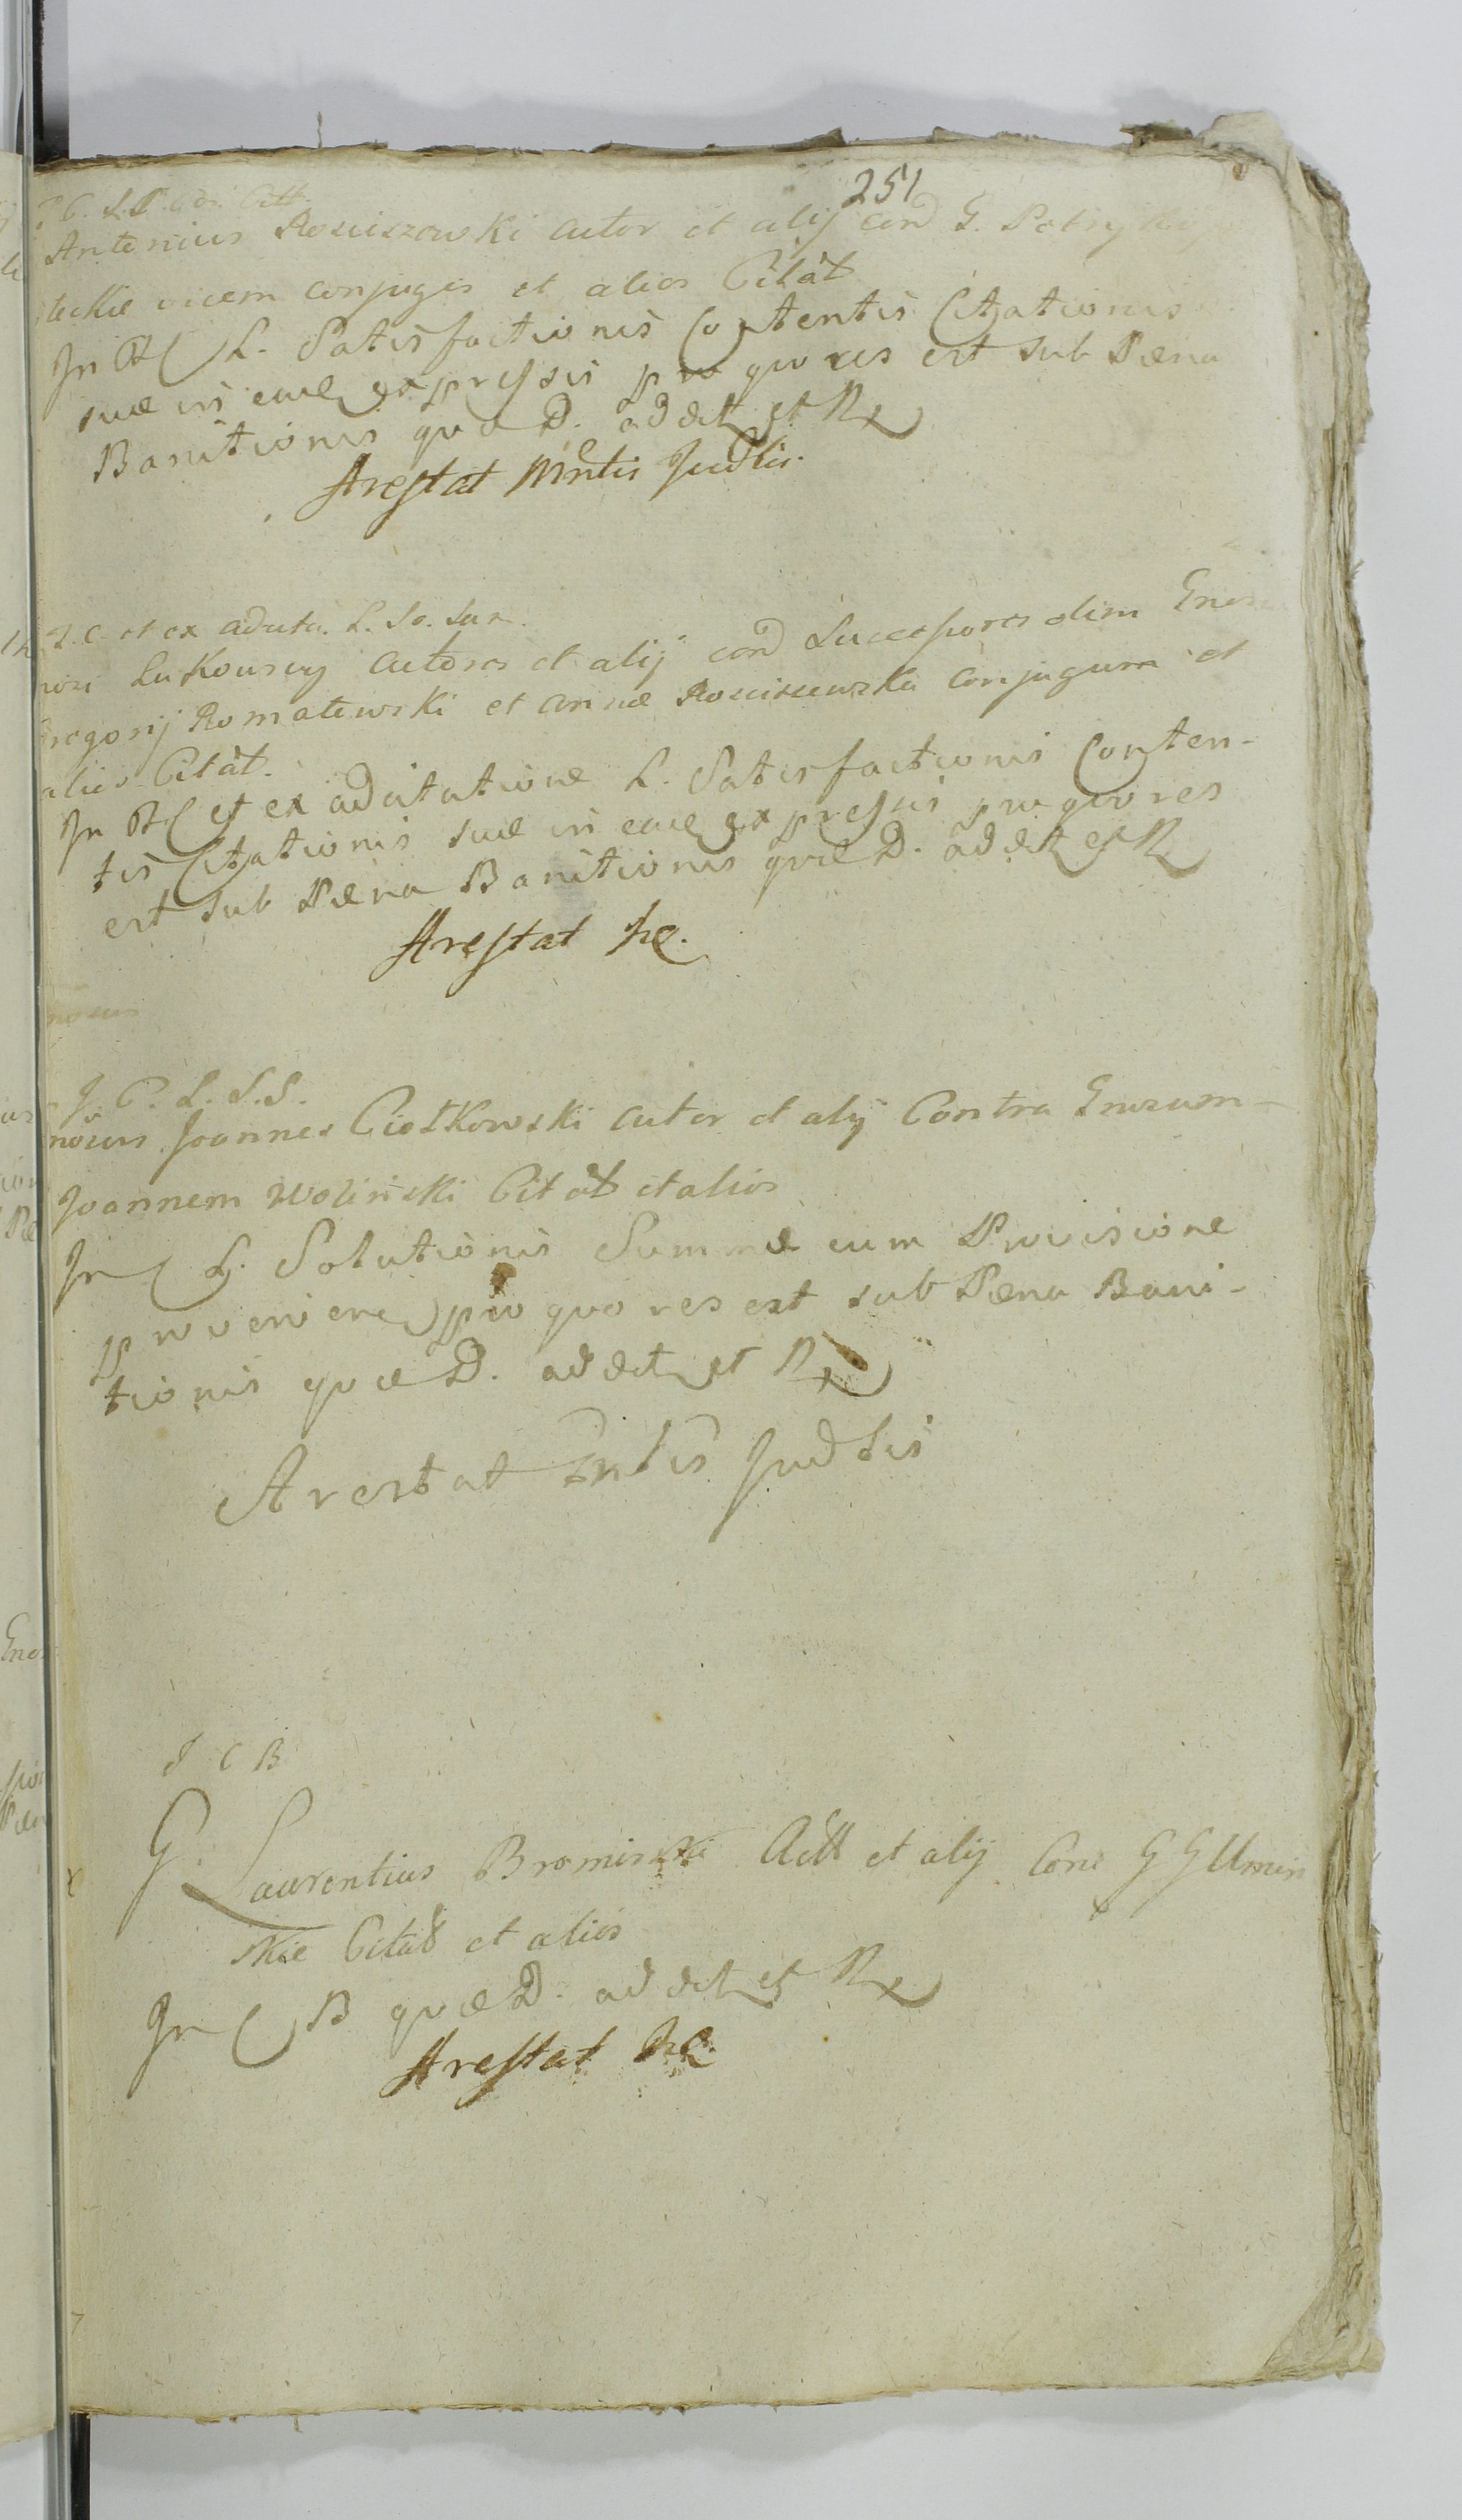 251
Antonius Rosciszowski Actor et alij con G.
teckie vicem conjugis et alios Citat
In C L. Satisfactionis Contentis Citationis
suæ in eaue expressis pro quo res est sub Pæna
Banitionis quæ D. addet et R
Arestat Mntis Judlis.
I. C. et ex adcita. L. Sa. San.
Lukouscy Actores et alij con Successores olim
regorij Romatowski et Annæ Rosciszewska Conjugum et
alios Citat.
In et ex adcitatione L. Satisfactionis Conten-
tis Citationis suæ in eaue expressis pro quo res
est sub Pæna Banitionis quæ D. addet et R
Arestat hc.
J. C. L. S. S.
Joannes Ciotkowski Actor et alij Contra Gnosum
Joannem Wolinski Citat et alios
In C L. Solutionis Summæ cum Provisione
proveniene pro quo res est sub Pæna Bani-
tionis quæ D. addet et R
Arestat Judlis
J C B
G. Laurentius Brominski Actt et alij Con G G Umin
skie Citat et alios
In C B quæ D. addet et R
Arestat hc